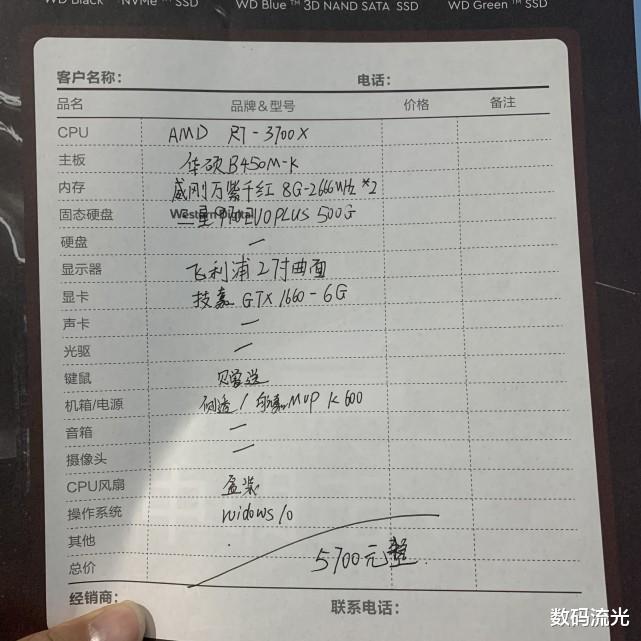 WD Black NVMe™ SSD WD Blue™ 3D NAND SATA SSD WD Green™ SSD
客户名称： 电话：
品名 品牌&型号 价格 备注
CPU AMD R7-3700X
主板 华硕B450M-K
内存 威刚万紫千红 8G-2666MHz *2
固态硬盘 三星970EVOPLUS 500G
Western Digital
硬盘 —
显示器 飞利浦27寸曲面
显卡 技嘉 GTX 1660-6G
声卡 —
光驱 —
键鼠
机箱/电源 侧透/ MVP K600
音箱 —
摄像头 —
CPU风扇 盒装
操作系统 widows10
其他
总价 5700元整
经销商： 联系电话：
数码流光